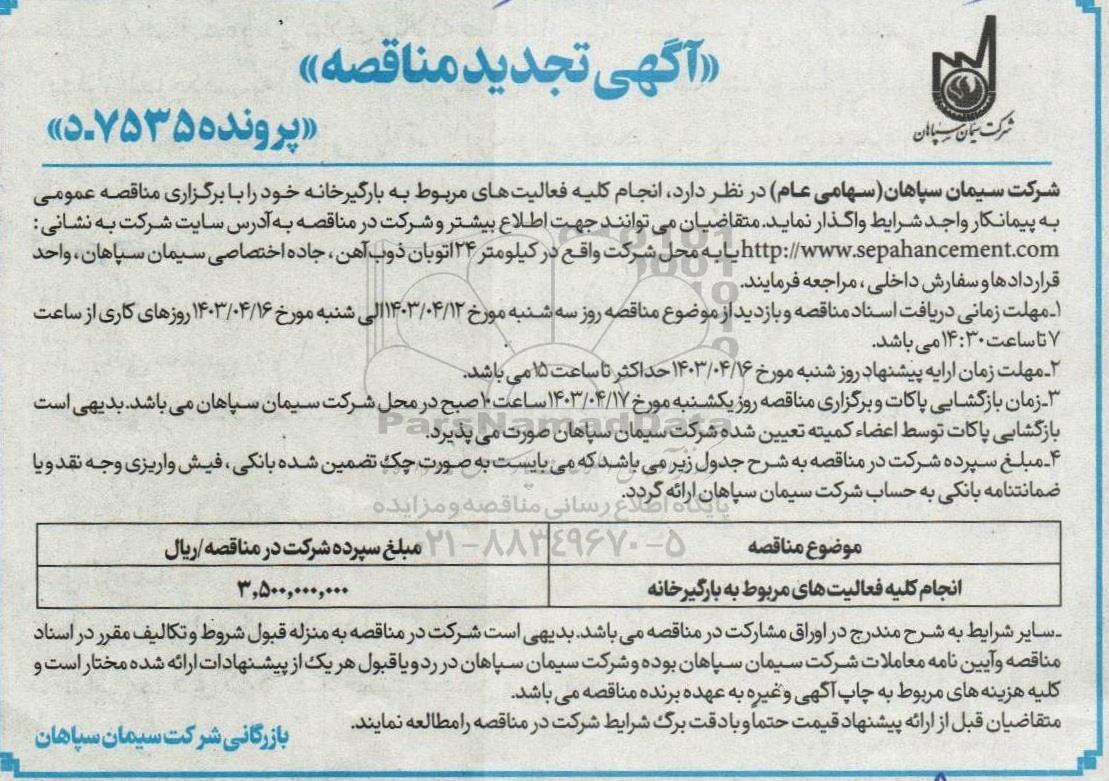 «آگهی تجدید مناقصه»
شرکت سیمان سپاهان
«پرونده ۷۵۳۵-د»
شرکت سیمان سپاهان(سهامی عام) در نظر دارد، انجام کلیه فعالیت‌های مربوط به بارگیرخانه خود را با برگزاری مناقصه عمومی
به پیمانکار واجد شرایط واگذار نماید. متقاضیان می توانند جهت اطلاع بیشتر و شرکت در مناقصه به آدرس سایت شرکت به نشانی :
http://www.sepahancement.com یا به محل شرکت واقع در کیلومتر ۲۴ اتوبان ذوب آهن ، جاده اختصاصی سیمان سپاهان ، واحد
قراردادها و سفارش داخلی ، مراجعه فرمایند.
۱-مهلت زمانی دریافت اسناد مناقصه و بازدید از موضوع مناقصه روز سه شنبه مورخ ۱۴۰۳/۰۴/۱۲ الی شنبه مورخ ۱۴۰۳/۰۴/۱۶ روزهای کاری از ساعت
۷ تا ساعت ۱۴:۳۰ می باشد.
۲-مهلت زمان ارایه پیشنهاد روز شنبه مورخ ۱۴۰۳/۰۴/۱۶ حداکثر تا ساعت ۱۵ می باشد.
۳-زمان بازگشایی پاکات و برگزاری مناقصه روز یکشنبه مورخ ۱۴۰۳/۰۴/۱۷ ساعت ۱۰ صبح در محل شرکت سیمان سپاهان می باشد. بدیهی است
بازگشایی پاکات توسط اعضاء کمیته تعیین شده شرکت سیمان سپاهان صورت می پذیرد.
ParsNamadData
۴-مبلغ سپرده شرکت در مناقصه به شرح جدول زیر می باشد که می بایست به صورت چک تضمین شده بانکی ، فیش واریزی وجه نقد و یا
ضمانتنامه بانکی به حساب شرکت سیمان سپاهان ارائه گردد.
پایگاه اطلاع رسانی مناقصه و مزایده
موضوع مناقصه مبلغ سپرده شرکت در مناقصه/ریال
۰۲۱-۸۸۳۴۹۶۷۰-۵
انجام کلیه فعالیت های مربوط به بارگیرخانه ۳,۵۰۰,۰۰۰,۰۰۰
-سایر شرایط به شرح مندرج در اوراق مشارکت در مناقصه می باشد. بدیهی است شرکت در مناقصه به منزله قبول شروط و تکالیف مقرر در اسناد
مناقصه و آیین نامه معاملات شرکت سیمان سپاهان بوده و شرکت سیمان سپاهان در رد و یا قبول هر یک از پیشنهادات ارائه شده مختار است و
کلیه هزینه های مربوط به چاپ آگهی و غیره به عهده برنده مناقصه می باشد.
متقاضیان قبل از ارائه پیشنهاد قیمت حتما و با دقت برگ شرایط شرکت در مناقصه را مطالعه نمایند.
بازرگانی شرکت سیمان سپاهان